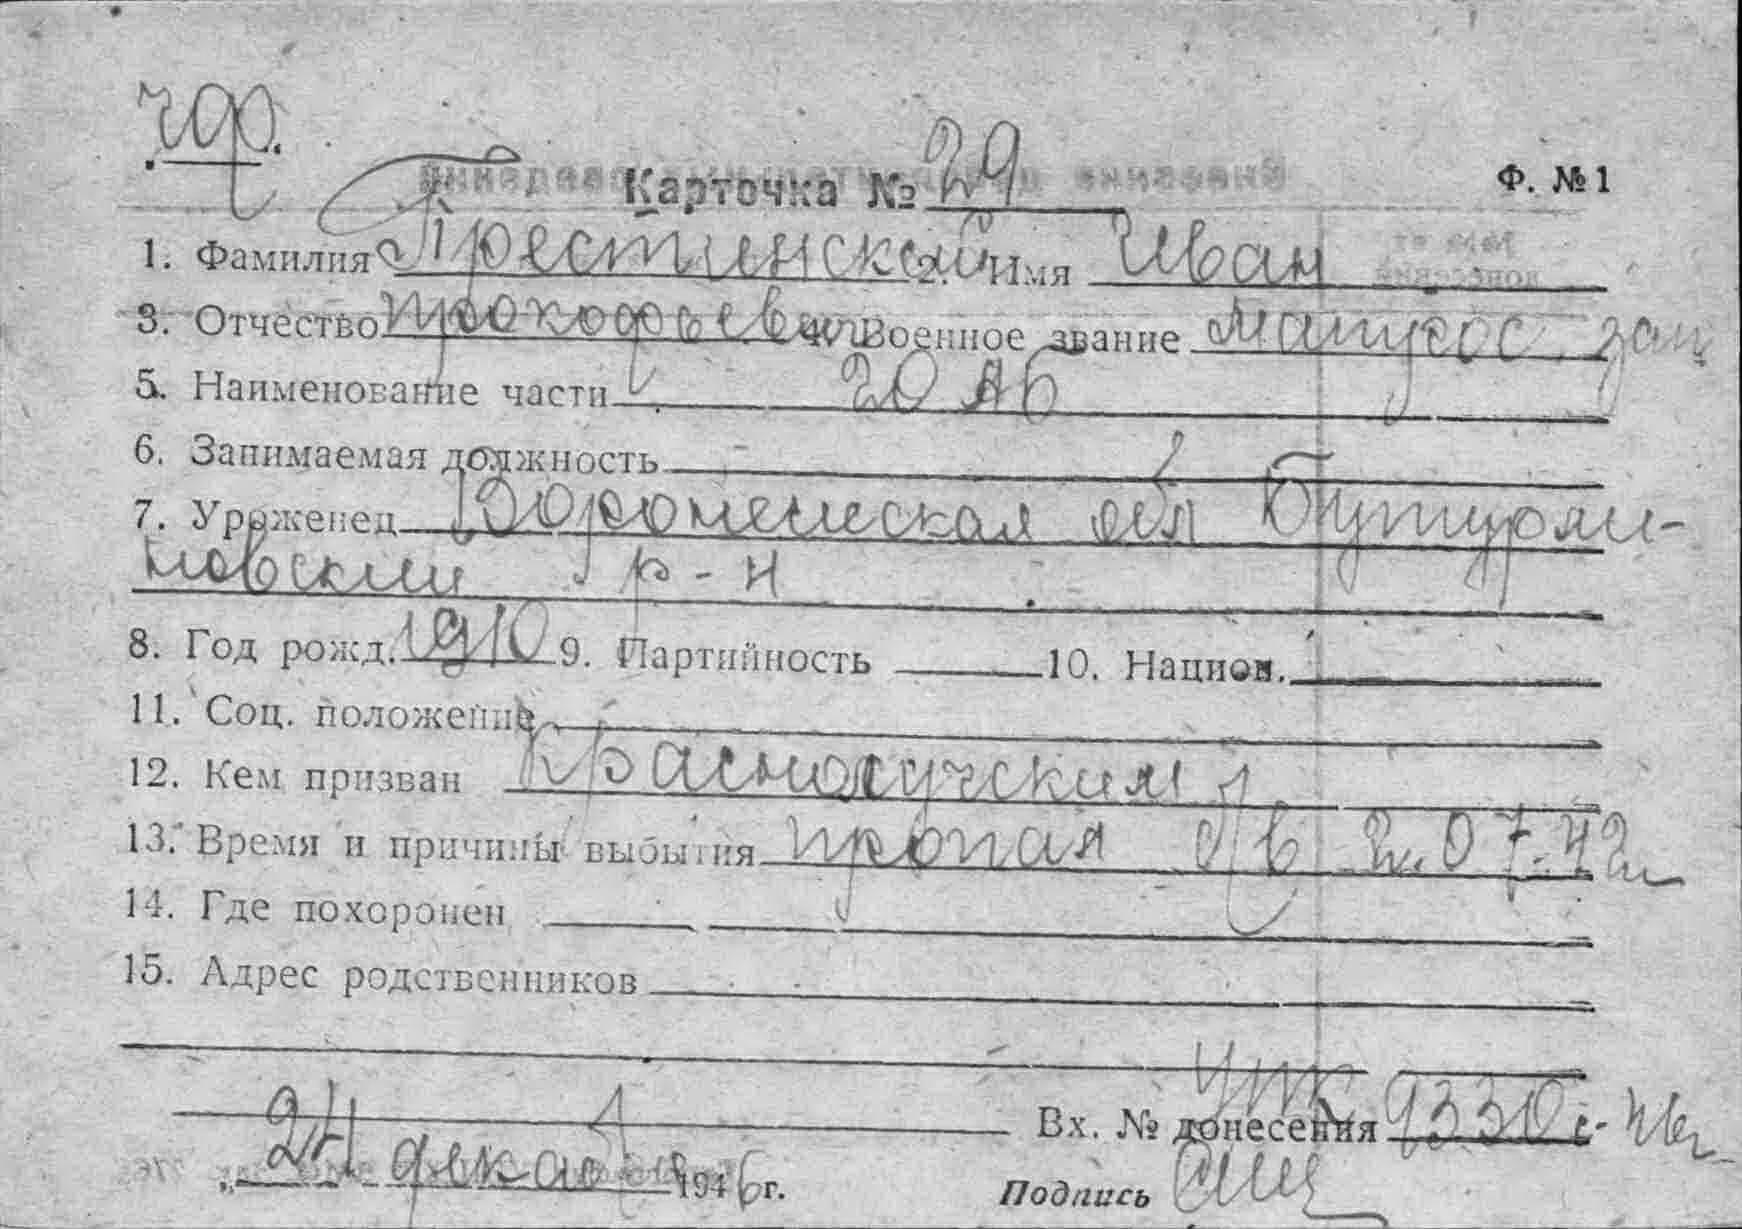 чф.
Карточка № 29 Ф. № 1
1. Фамилия Престинский 2. Имя Иван
3. Отчество Прокофьевич 4. Военное звание матрос зап
5. Наименование части 20 АБ
6. Занимаемая должность
7. Уроженец Воронежская обл Бутурли-
новский р-н
8. Год рожд. 1910 9. Партийность 10. Национ.
11. Соц. положение
12. Кем призван Краснолучским
13. Время и причины выбытия пропал б/в 07.42г
14. Где похоронен
15. Адрес родственников
упк
Вх. № донесения 9330с-46г
„24 декаб 1946 г. Подпись